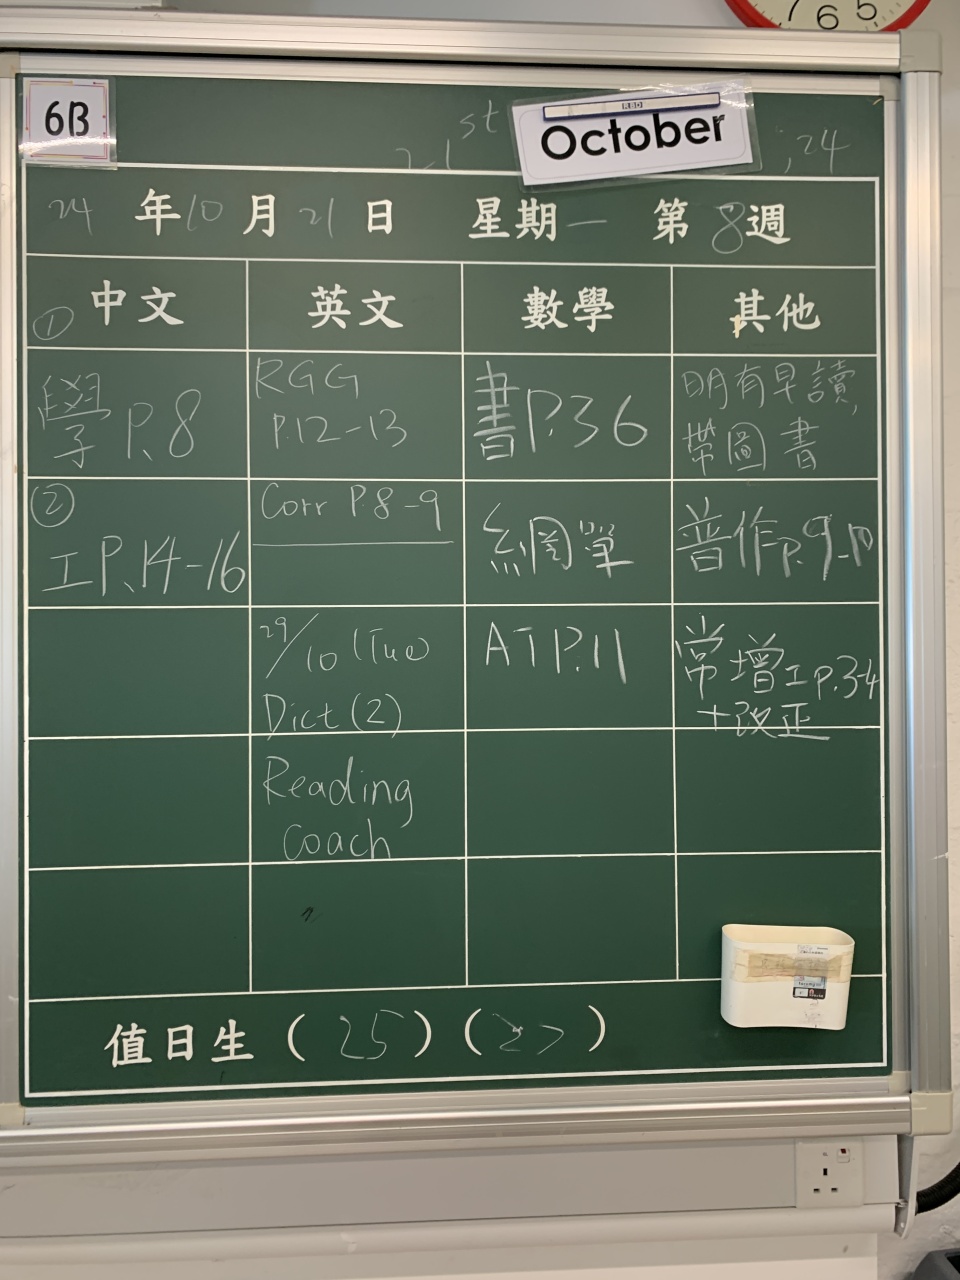 7 6 5
6B
RBD
21st October '24
24年10月21日 星期一 第8週
中文 英文 數學 其他
①
學P.8
RGG
P.12-13
書P.36
明有早讀,
帶圖書
②
工P.14-16
Corr P.8-9
網單
普作P.9-10
29/10 (Tue)
Dict (2)
ATP.11
常增工P.3-4
+改正
Reading
Coach
值日生(25)(27)